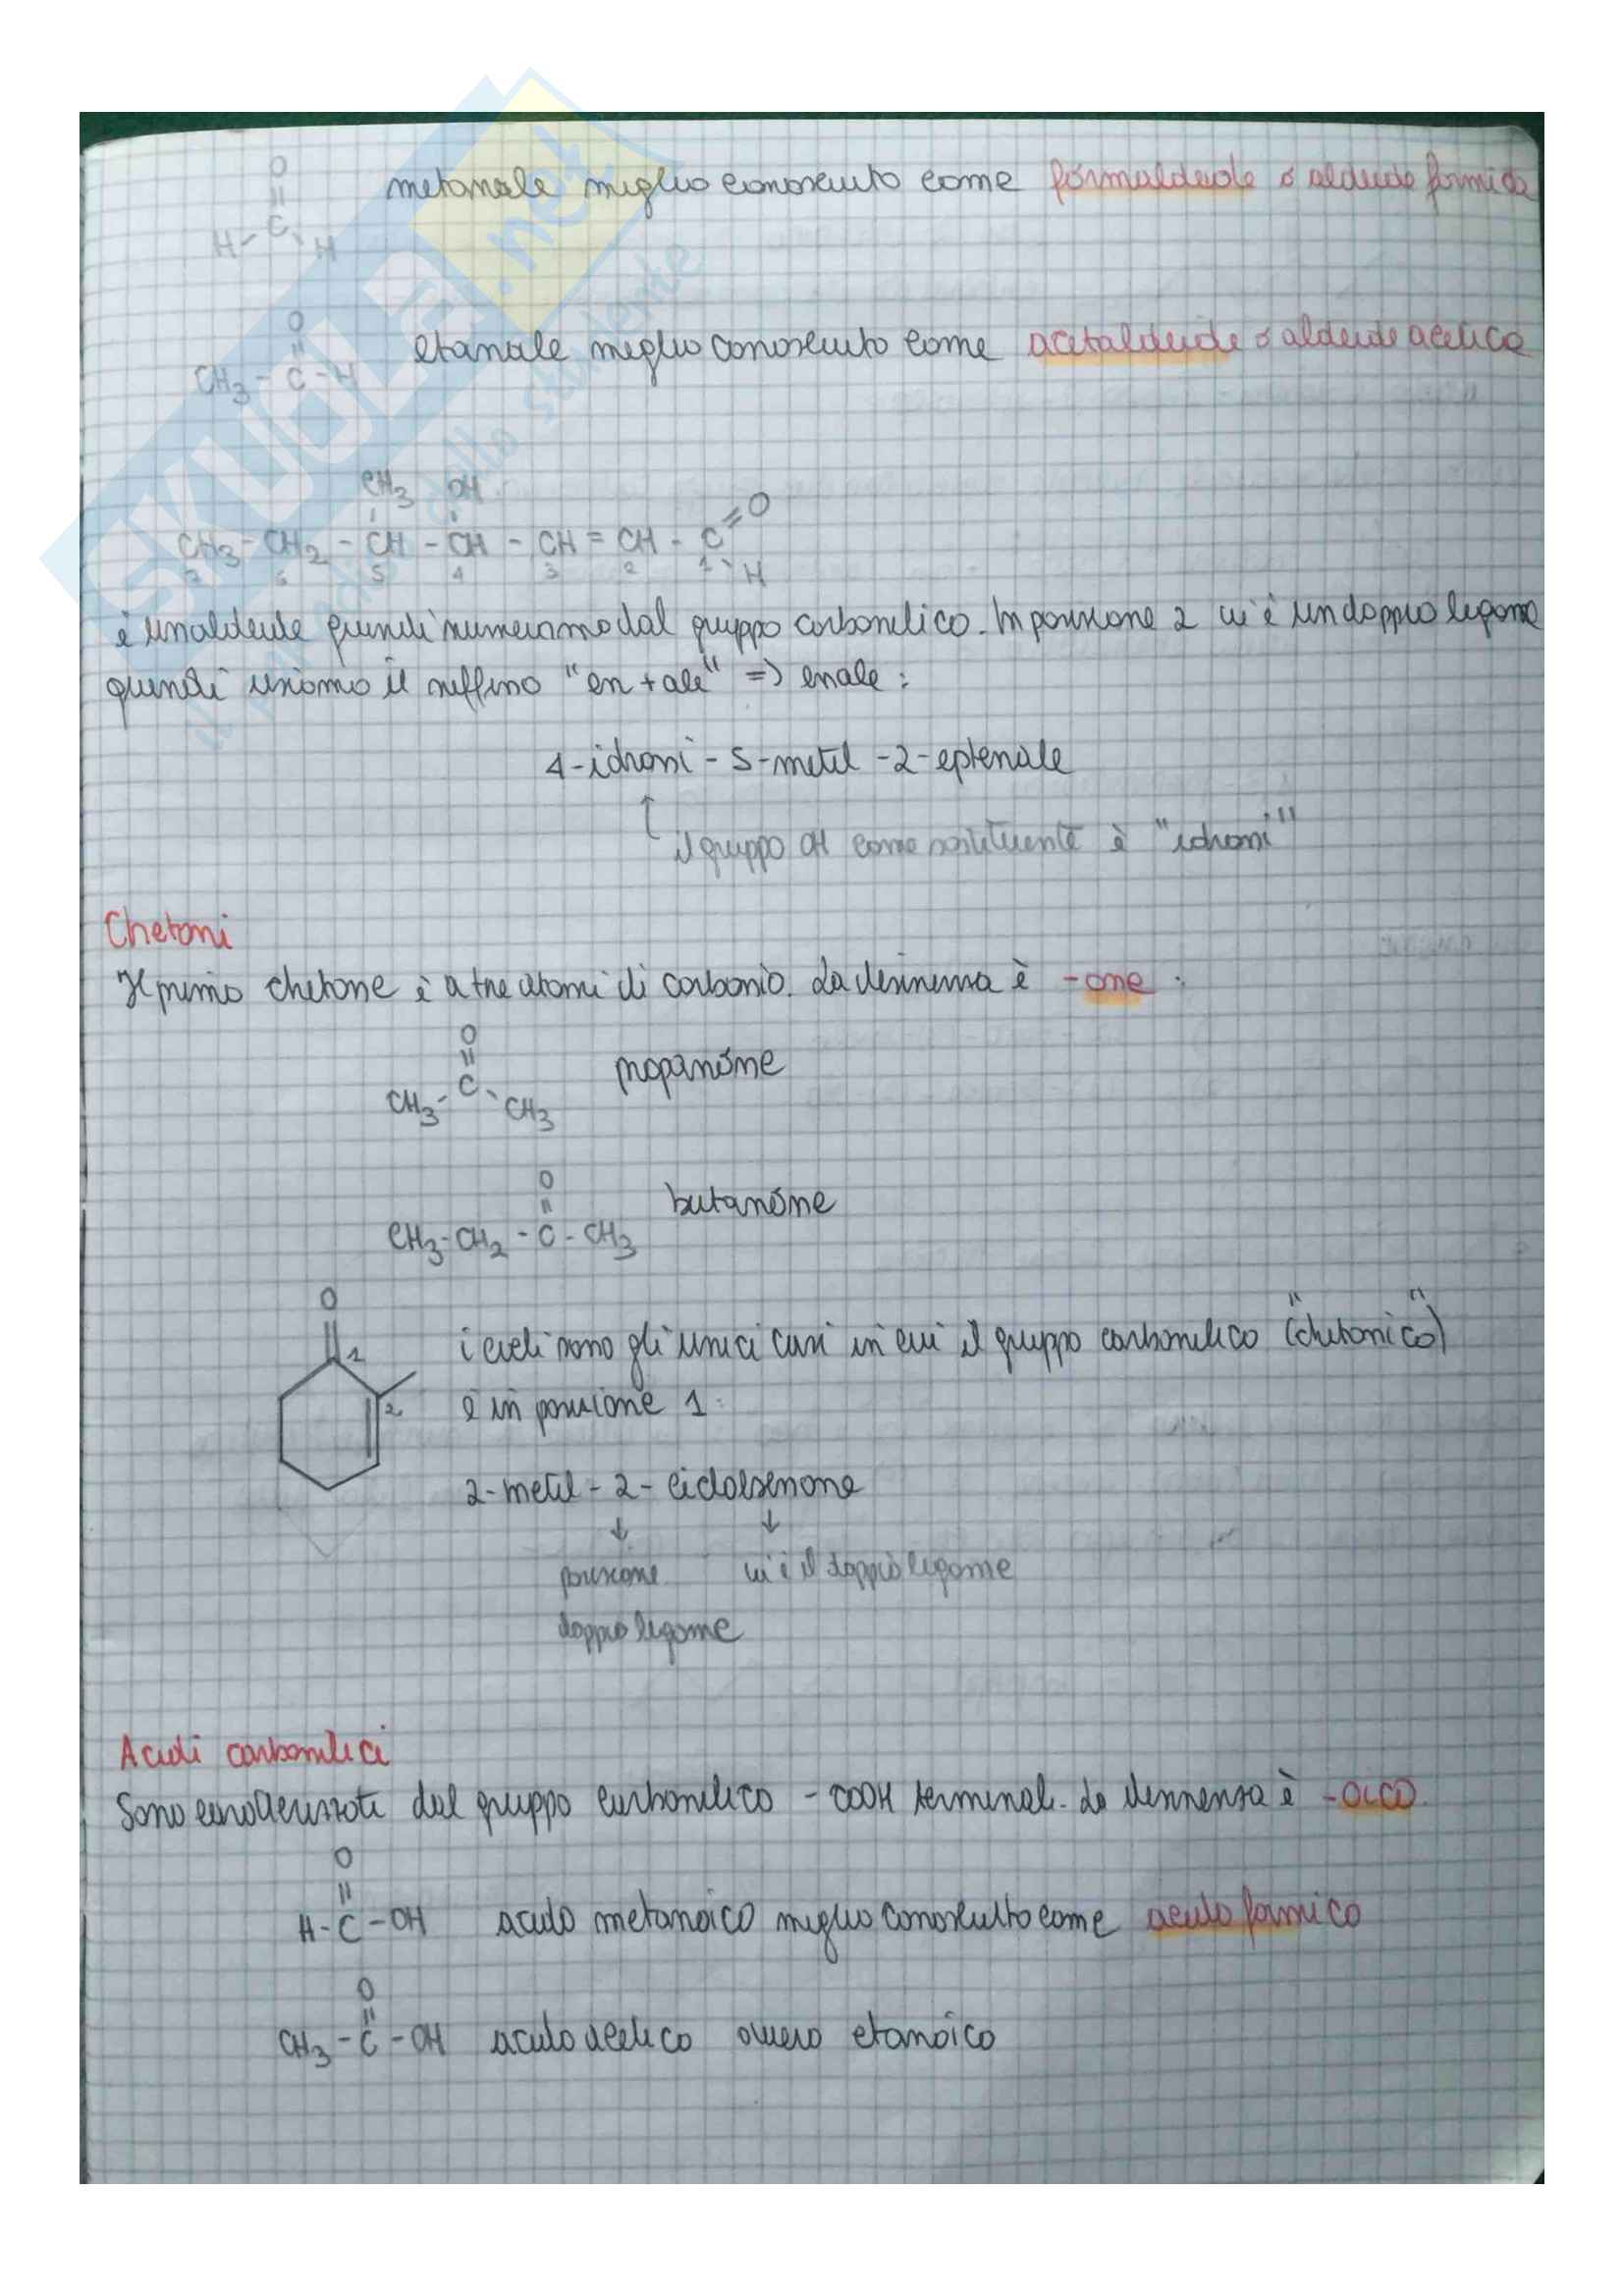 O
||
H - C - H
metanale meglio conosciuto come formaldeide o aldeide formica
O
||
CH3 - C - H
etanale meglio conosciuto come acetaldeide o aldeide acetica
SKUOLA.net
CH3 OH
CH3 - CH2 - CH - CH - CH = CH - C = O
7 6 5 4 3 2 1 H
è un'aldeide quindi numeriamo dal gruppo carbonilico. In posizione 2 vi è un doppio legame
quindi usiamo il suffisso "en + ale" => enale :
4-idrossi - 5-metil -2-eptenale
il gruppo OH come sostituente è "idrossi"
Chetoni
Il primo chetone è a tre atomi di carbonio. La desinenza è -one :
O
||
CH3 - C - CH3
propanone
O
||
CH3 - CH2 - C - CH3
butanone
O
1
2
i cicli sono gli unici casi in cui il gruppo carbonilico ("chetonico")
è in posizione 1.
2-metil - 2 - cicloesenone
↓ ↓
posizione vi è il doppio legame
doppio legame
Acidi carbossilici
Sono caratterizzati dal gruppo carbossilico - COOH terminale. La desinenza è -OICO.
O
||
H - C - OH acido metanoico meglio conosciuto come acido formico
O
||
CH3 - C - OH acido acetico ovvero etanoico